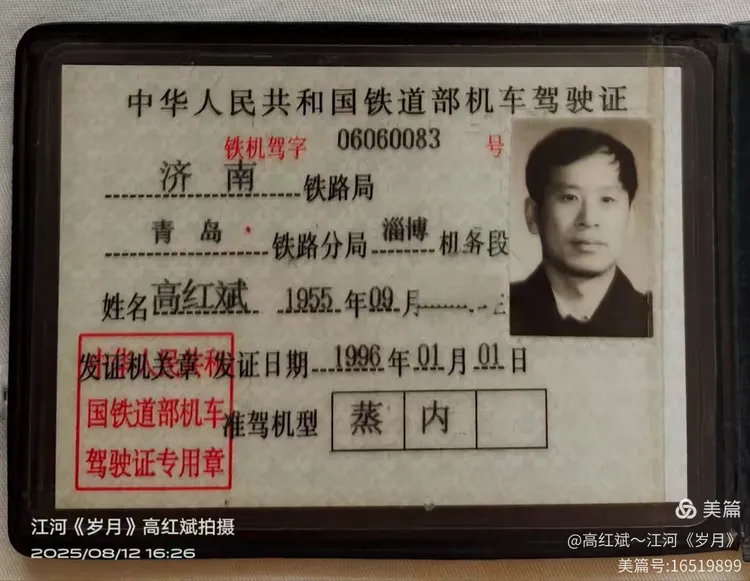 中华人民共和国铁道部机车驾驶证
铁机驾字 06060083 号
济南铁路局
青岛铁路分局淄博机务段
姓名高红斌 1955年09月
发证机关章 发证日期 1996年01月01日
准驾机型 蒸 内
中华人民共和
国铁道部机车
驾驶证专用章
江河《岁月》高红斌拍摄
2025/08/12 16:26
美篇
@高红斌~江河《岁月》
美篇号:16519899